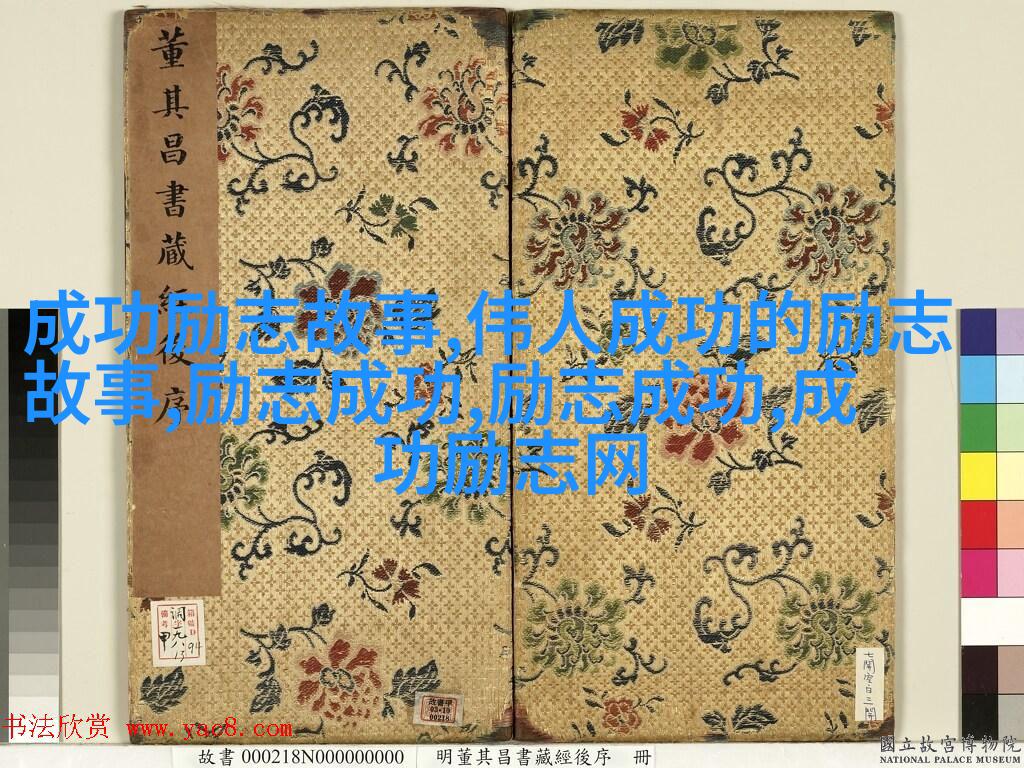 董其昌書藏經後序
成功励志故事,伟人成功的励志
故事,励志成功,励志成功,成
功励志网
箱號D
備考
調字九八13
194
甲
故書甲
03•10
00218
七開空白三開
书法欣赏 www.yac8.com
故書 000218N000000000
明董其昌書藏經後序 冊
國立故宮博物院
NATIONAL PALACE MUSEUM